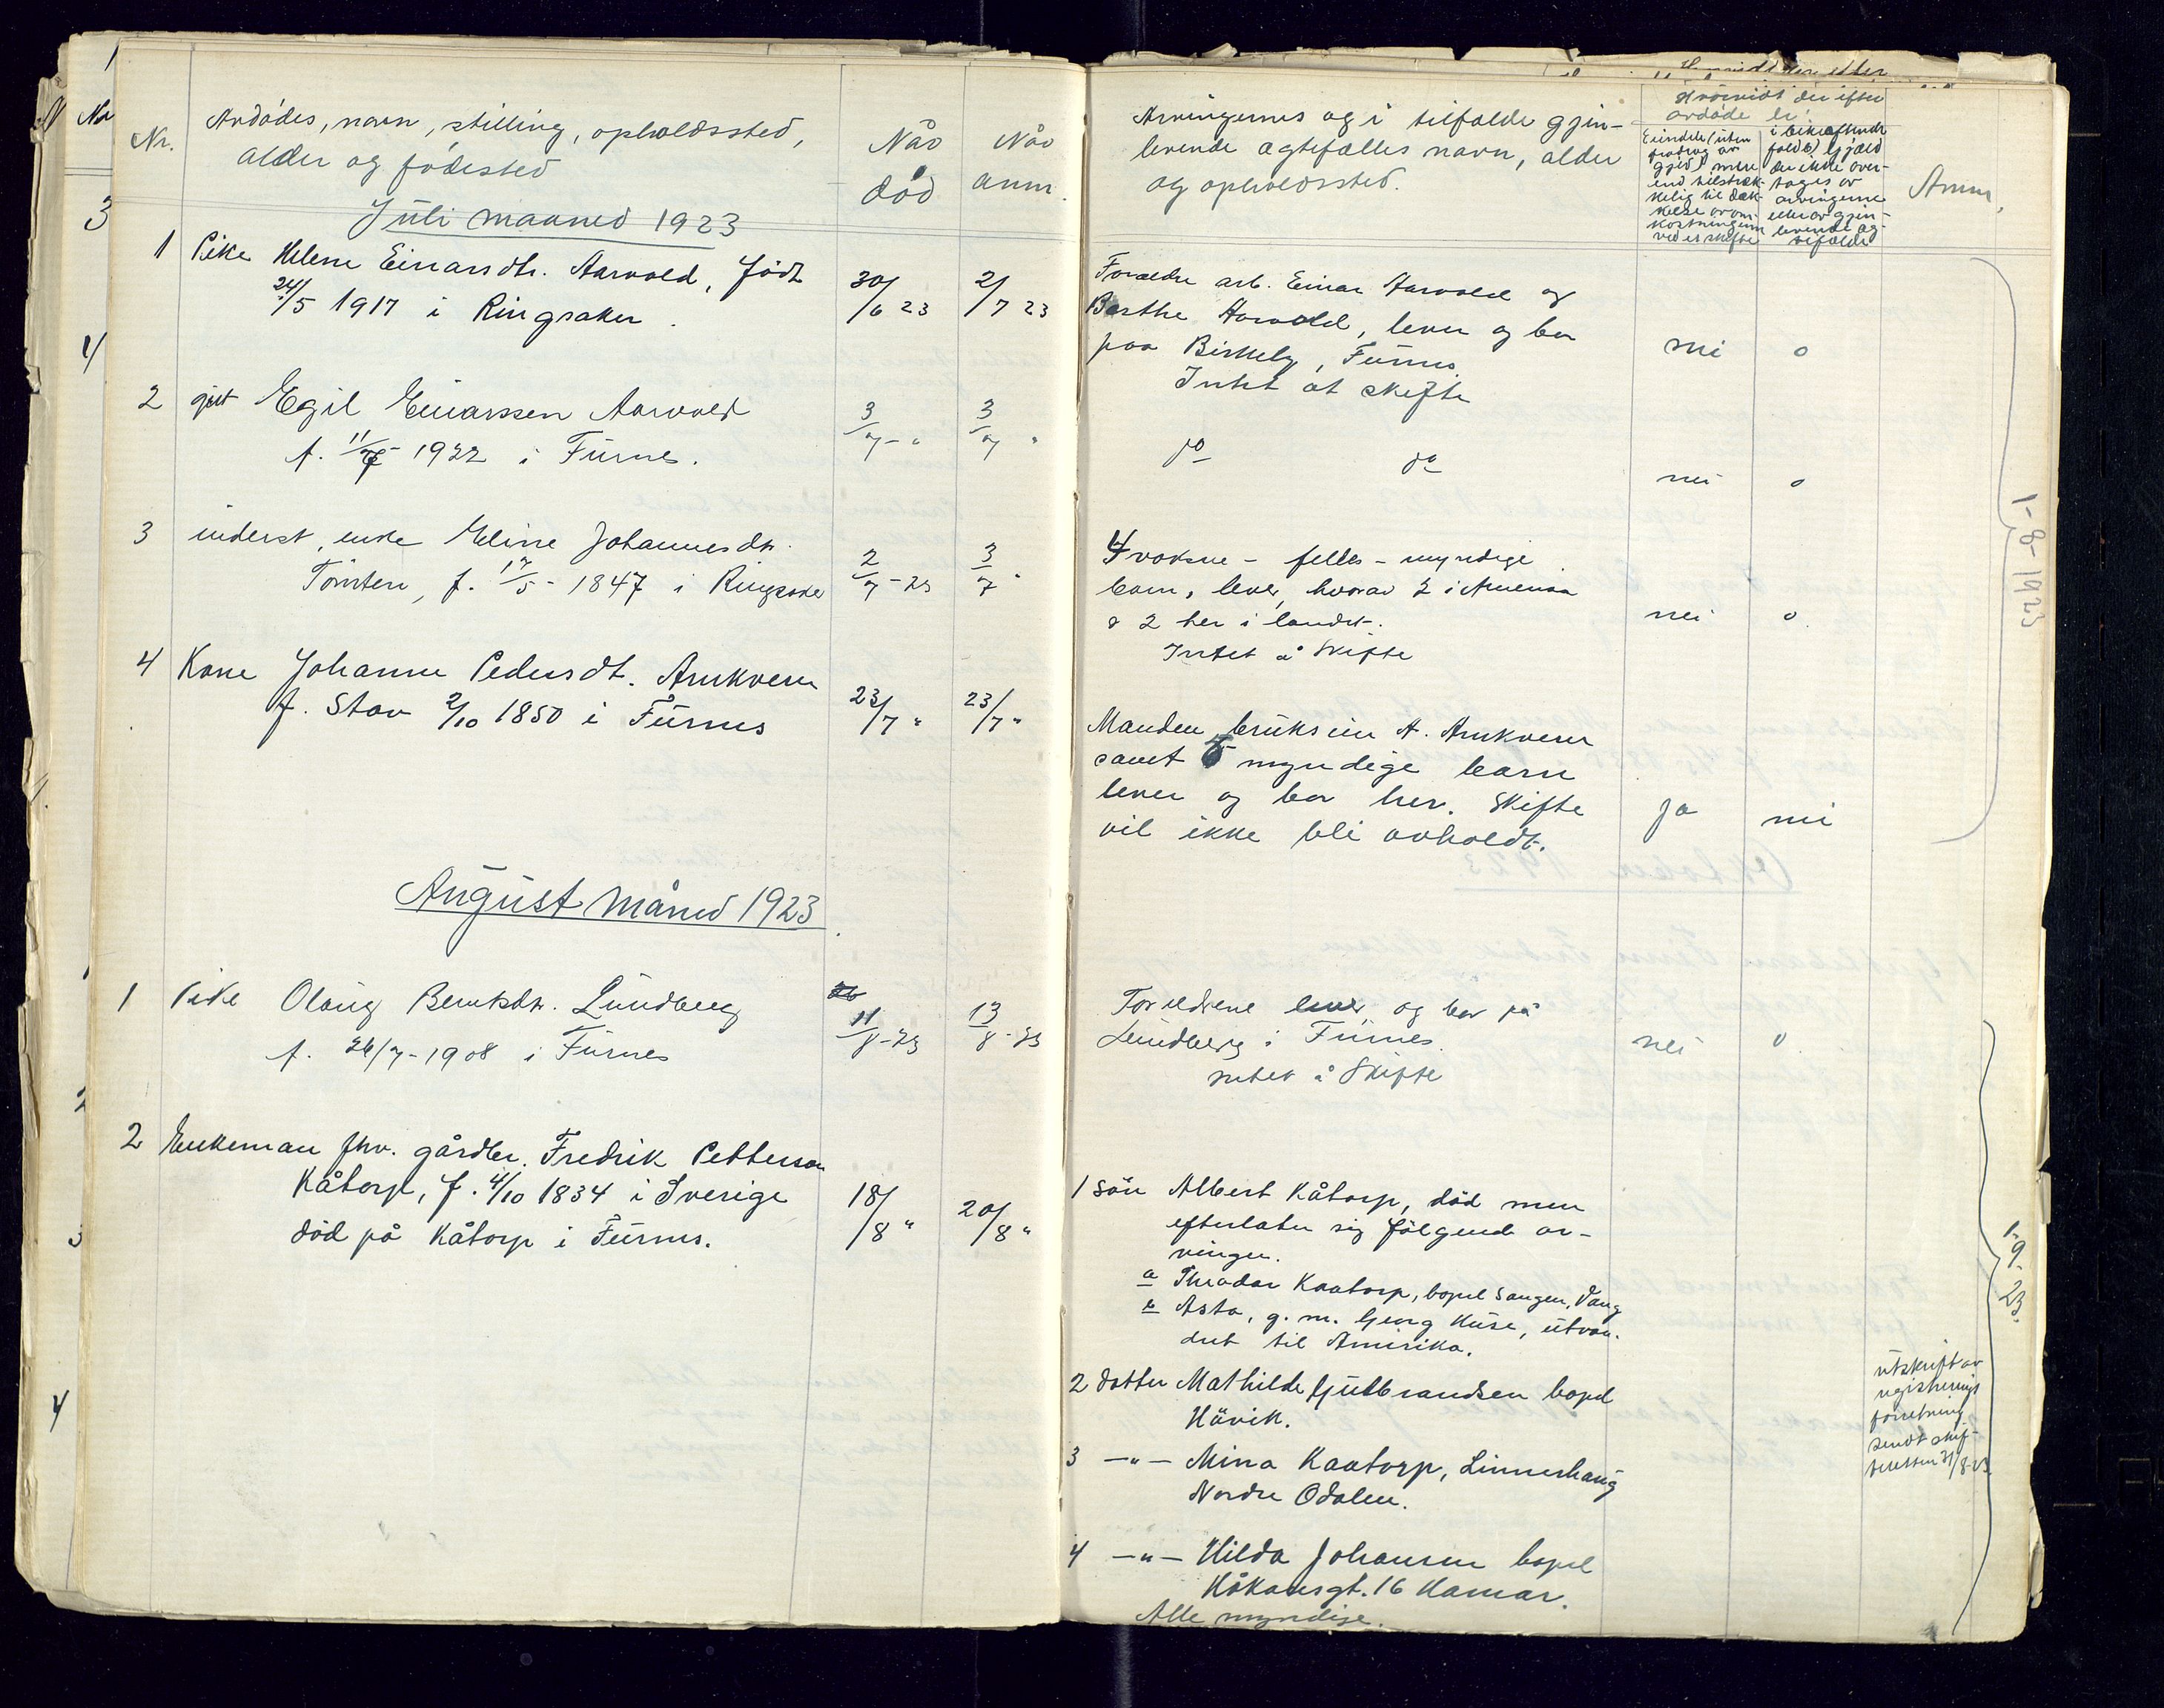 Nr.
Avdödes, navn, stilling, opholdssted,
alder og födested
Når
död
Når
anm.
Juli maaned 1923
1 Pike Helene Einarsdtr. Aarvold, född
24/5 1917 i Ringsaker.
30/6 23
2/7 23
2 gut Egil Einarssen Aarvold
f. 11/7 1922 i Furnes.
3/7 - "
3/7 "
3 inderst, enke Eline Johannesdtr.
Tömten, f. 17/5 - 1847 i Ringsaker
2/7 - 23
3/7 "
4 Kone Johanne Pedersdt. Arnkvern
f. Stav 2/10 1850 i Furnes
23/7 "
23/7 "
August Måned 1923
1 Pike Olaug Berntsdtr. Lundberg
f. 26/7 - 1908 i Furnes
11/8 - 23
13/8 - 23
2 Enkeman fhv. gårdbr. Fredrik Petterson
Kåtorp, f. 4/10 1834 i Sverige
död på Kåtorp i Furnes.
18/8 "
20/8 "
Arvingernes og i tilfælde gjen-
levende ægtefælles navn, alder
og opholdssted.
Hvorvidt der efter
avdøde er:
Eiendele (uten
fradrag av
gjæld) mere
end tilstræk-
kelig til dæk-
kelse av om-
kostningerne
ved et skifte
i bekræftende
fald b) Gjæld
der ikke over-
tages av
arvingerne
eller av gjen-
levende æg-
tefælde
Anm.
Forældre arb. Einar Aarvold og
Berthe Aarvold, lever og bor
paa Birkely, Furnes.
Intet at skifte
nei o
do do
nei o
4 voksne - felles - myndige
barn, lever, hvorav 2 i Amerika
& 2 her i landet.
Intet å Skifte
nei o
Manden brukseier A. Arnkvern
samt 5 myndige barn
lever og bor her. Skifte
vil ikke bli avholdt.
ja nei
1-8-1923
Foreldrene lever, og bor på
Lundberg i Furnes.
Intet å Skifte
nei o
1 sön Albert Kåtorp, död men
efterlater sig fölgende ar-
vinger.
a Theodor Kaatorp, bopel Sangen, Vang
b Asta, g. m. Georg Huse, utvan-
dret til Amerika.
2 datter Mathilde Gulbrandsen bopel
Hövik.
3 -"- Mina Kaatorp, Linnerhaug
Nordre Odalen.
4 -"- Hilda Johansen bopel
Håkonsgt. 16 Hamar.
Alle myndige.
utskrift av
registrerings
forretning
sendt skif-
teretten 31/8-23.
1-9-23.